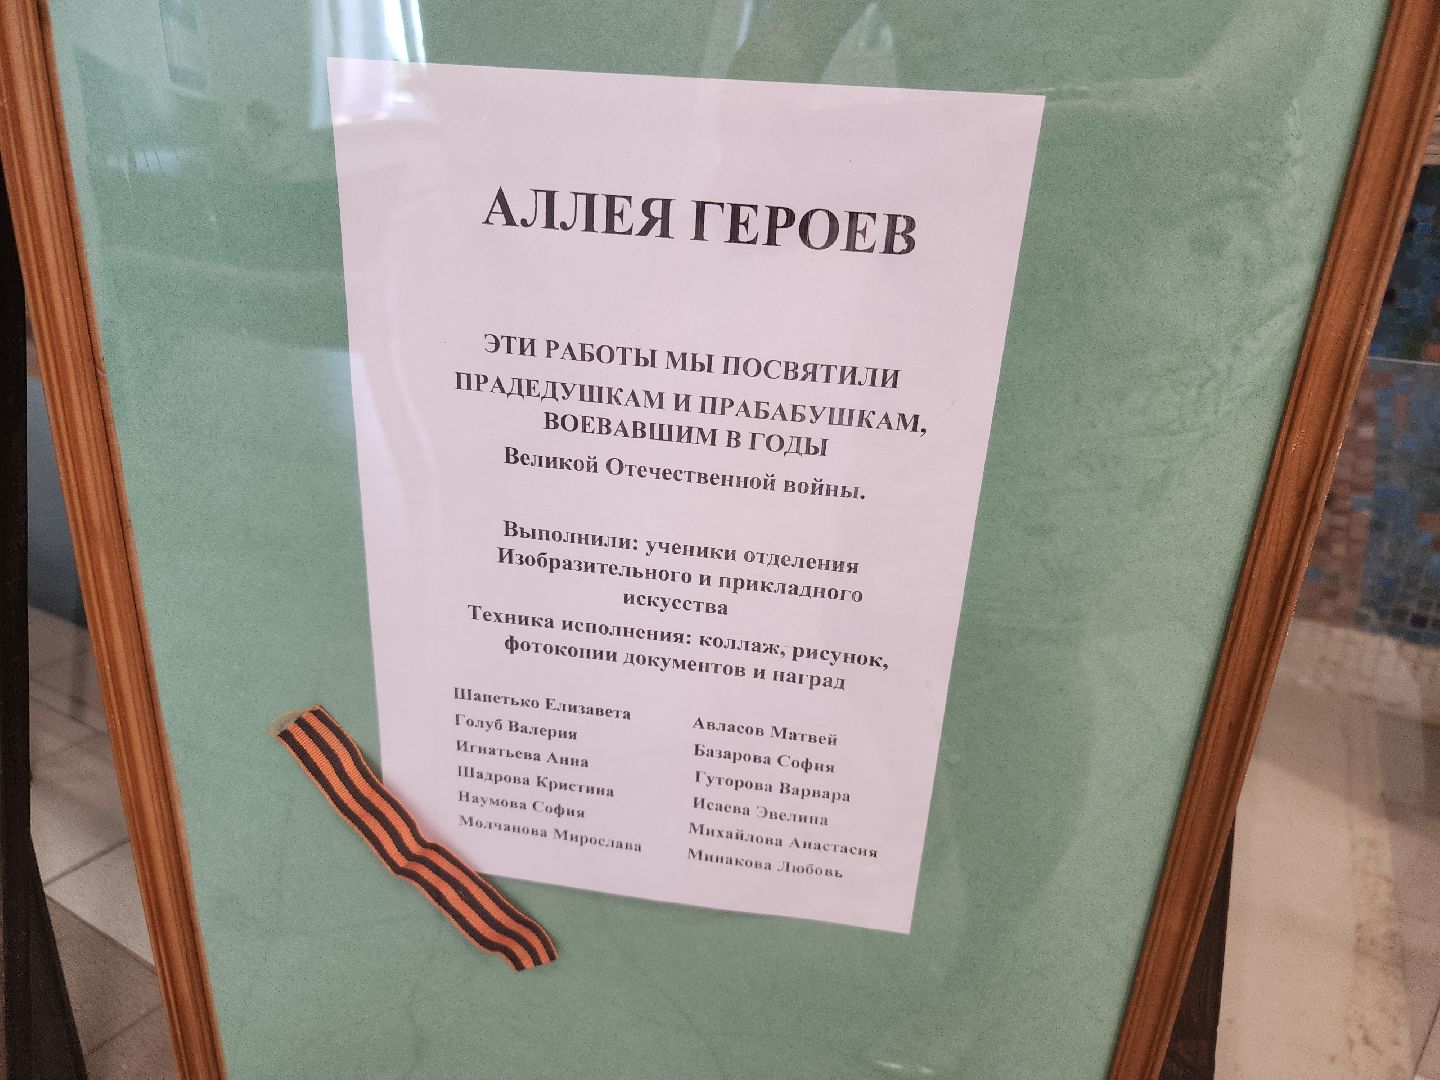 АЛЛЕЯ ГЕРОЕВ
ЭТИ РАБОТЫ МЫ ПОСВЯТИЛИ
ПРАДЕДУШКАМ И ПРАБАБУШКАМ,
ВОЕВАВШИМ В ГОДЫ
Великой Отечественной войны.
Выполнили: ученики отделения
Изобразительного и прикладного
искусства
Техника исполнения: коллаж, рисунок,
фотокопии документов и наград
Шапетько Елизавета
Голуб Валерия
Игнатьева Анна
Шадрова Кристина
Наумова София
Молчанова Мирослава
Авласов Матвей
Базарова София
Гуторова Варвара
Исаева Эвелина
Михайлова Анастасия
Минакова Любовь